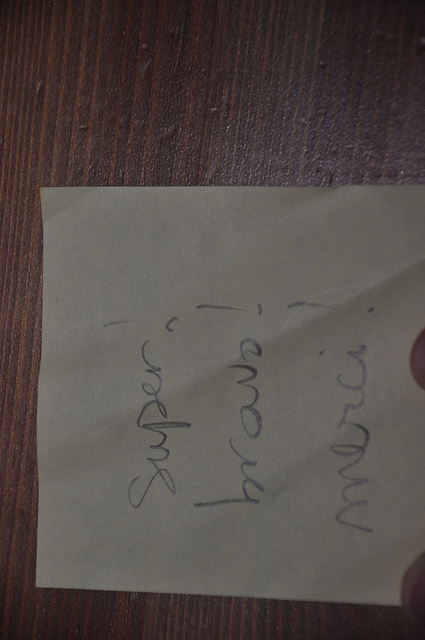 super!
bravo!
merci!